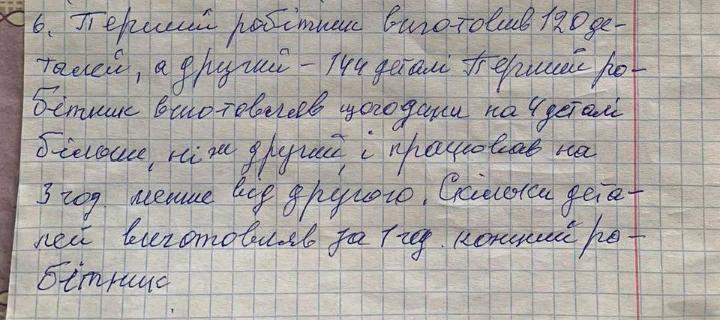 6. Перший робітник виготовив 120 де-
талей, а другий - 144 деталі Перший ро-
бітник виготовляв щогодини на 4 деталі
більше, ніж другий, і працював на
3 год. менше від другого. Скільки дета-
лей виготовляв за 1 год. кожний ро-
бітник